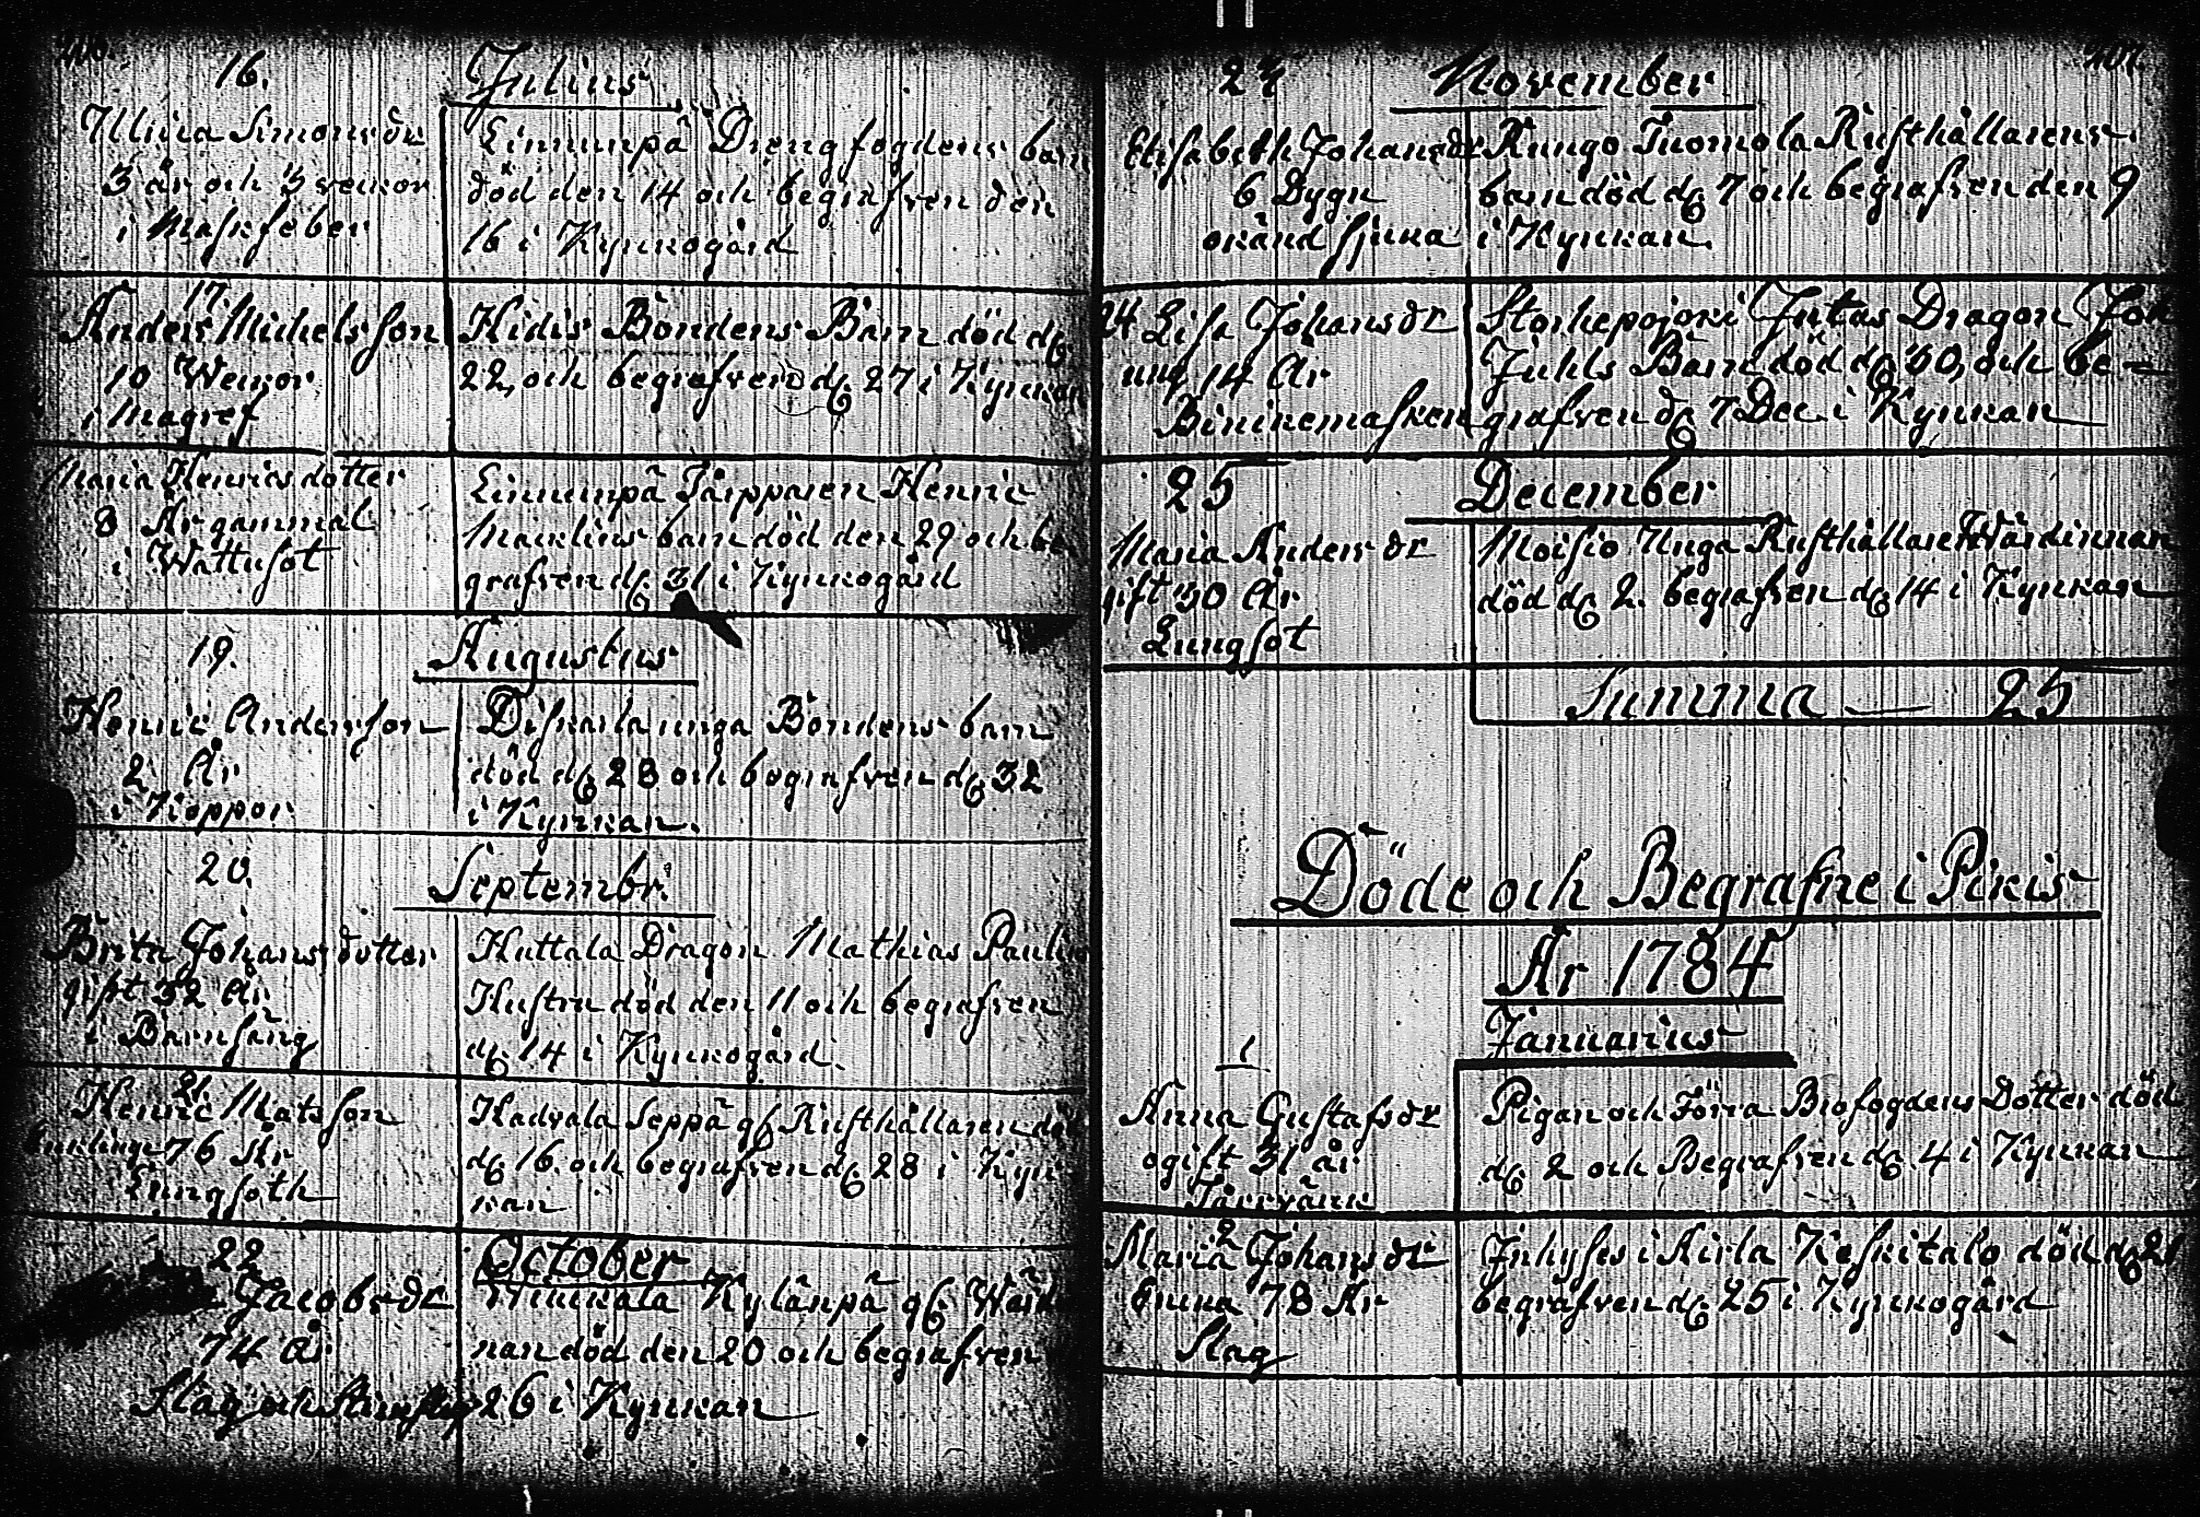 16.
Julius
Ulrica Simonsdr
3 år och 3 veckor
i Maskfeber
Linnunpä Drengfogdens barn
död den 14 och begrafven den
16 i Kyrkogård
17.
Anders Michelsson
10 Weckor
i Magref
Kidis Bondens Barn död d.
22, och begrafven d. 27 i Kyrkan
Maria Henricsdotter
8 År gammal
i Wattusot
Linnunpä Henric
barn död den 29 och be
grafven d. 31 i Kyrkogård
19.
Augustus
Henric Andersson
2 År
i Koppor
unga Bondens barn
död d. 28 och begrafven d. 32
i Kyrkan.
20.
Septembr.
Brita Johansdotter
gift 32 År
i Barnsäng
Huttala Dragon Mathias Pauli
Hustru död den 11 och begrafven
d. 14 i Kyrkogård.
21.
Henric Matsson
Enklinge 76 År
Lungsoth
Hadvala Seppä gf. Rusthållaren död
d. 16. och begrafven d. 28 i Kyr
kan
22
October
Jacobsdr
74 år
Slag och
Kylänpä gf. Wärdin
nan död den 20 och begrafven
26 i Kyrkan
207.
23
November
Elisabeth Johansdr
6 Dygn
okänd sjuka
Rungo Tuomola Rusthållarens
barn död d. 7 och begrafven den 9
i Kyrkan.
24 Lisa Johansdr
ung 14 År
Bininemasken
Storhepojoki Jutas Dragon Joh
Juhls Barn död d. 30, och be-
grafven d. 7 Dec. i Kyrkan
25
December
Maria Andersdr
gift 30 År
Lungsot
Moisio Unga Rusthållare Wärdinnan
död d. 2. begrafven d. 14 i Kyrkan
Summa — 25
Döde och Begrafne i Pikis
År 1784
Januarius
1
Anna Gustafsdr
ogift 31 år
Pigan och Förra Brofogdens Dotter död
d. 2 och Begrafven d. 4 i Kyrkan
2
Maria Johansdr
Enka 78 År
Slag
Inhyses i Kirla Keskitalo död d. 21
begrafven d. 25 i Kyrkogård